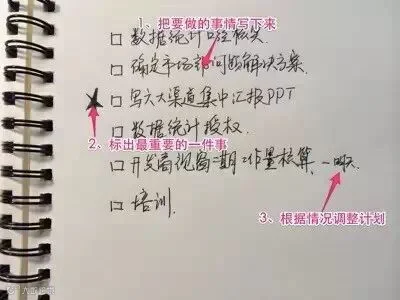 1、把要做的事情写下来
□ 数据统计口径核实
□ 确定市场部问题解决方案.
★ □ 写六大渠道集中汇报PPT
□ 数据统计授权.
2、标出最重要的一件事
□ 开发商视窗二期工作量核算.
3、根据情况调整计划
□ 培训.